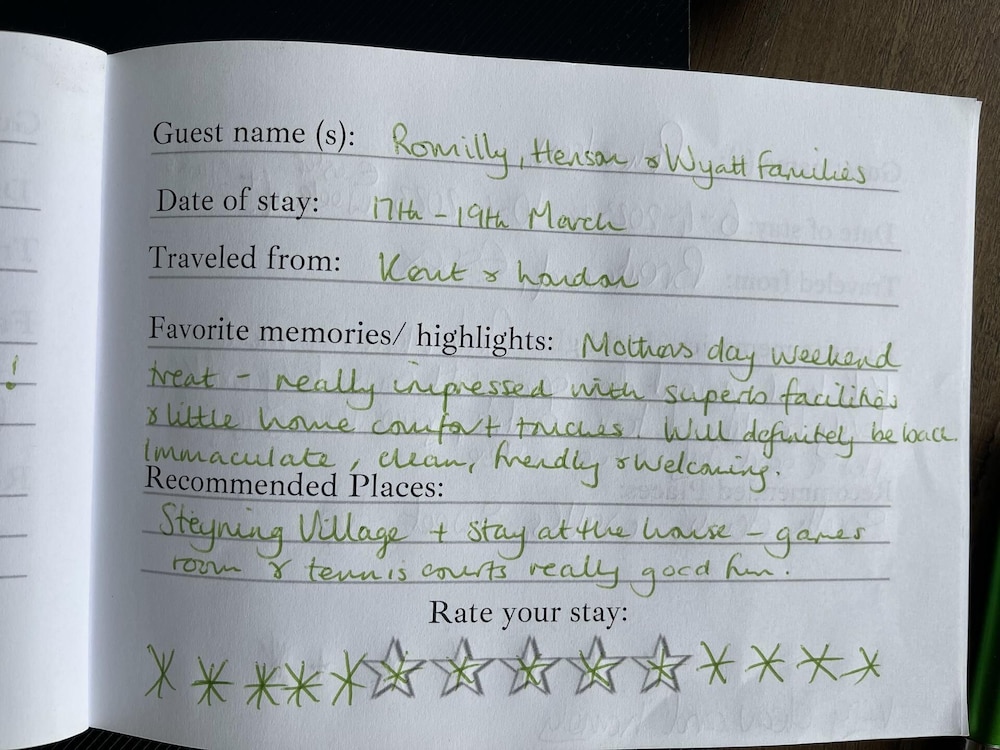 Guest name (s): Romilly, Henson & Wyatt families
Date of stay: 17th - 19th March
Traveled from: Kent & London
Favorite memories/ highlights: Mothers day weekend
treat - really impressed with superb facilities
& little home comfort touches. Will definitely be back.
Immaculate, clean, friendly & welcoming.
Recommended Places:
Steyning Village + stay at the house - games
room & tennis courts really good fun.
Rate your stay: